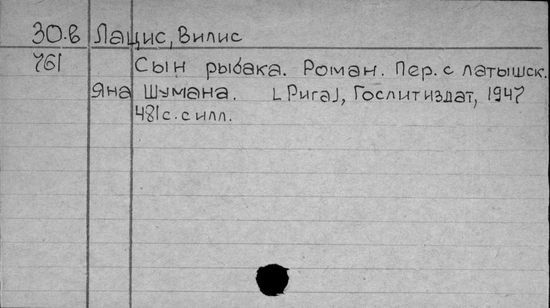 30.в Лацис, Вилис
761 Сын рыбака. Роман. Пер. с латышск.
Яна Шумана. [Рига], Гослитиздат, 1947
481 с. с илл.